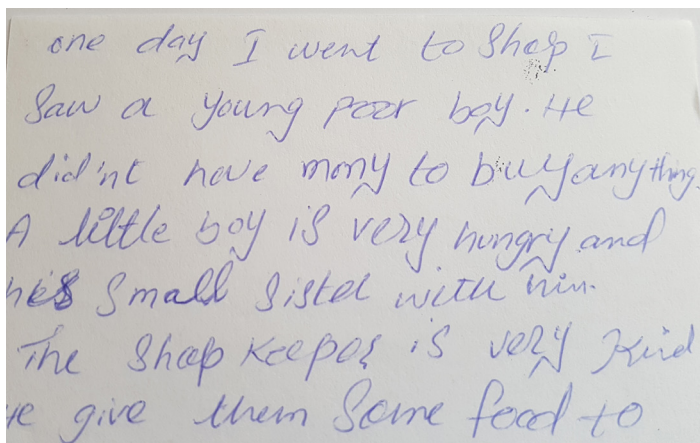 one day I went to Shop I
Saw a young poor boy. He
did'nt have mony to buy anything.
A little boy is very hungry and
he's Small Sister with him.
The Shop Keeper is very Kind
He give them Some food to